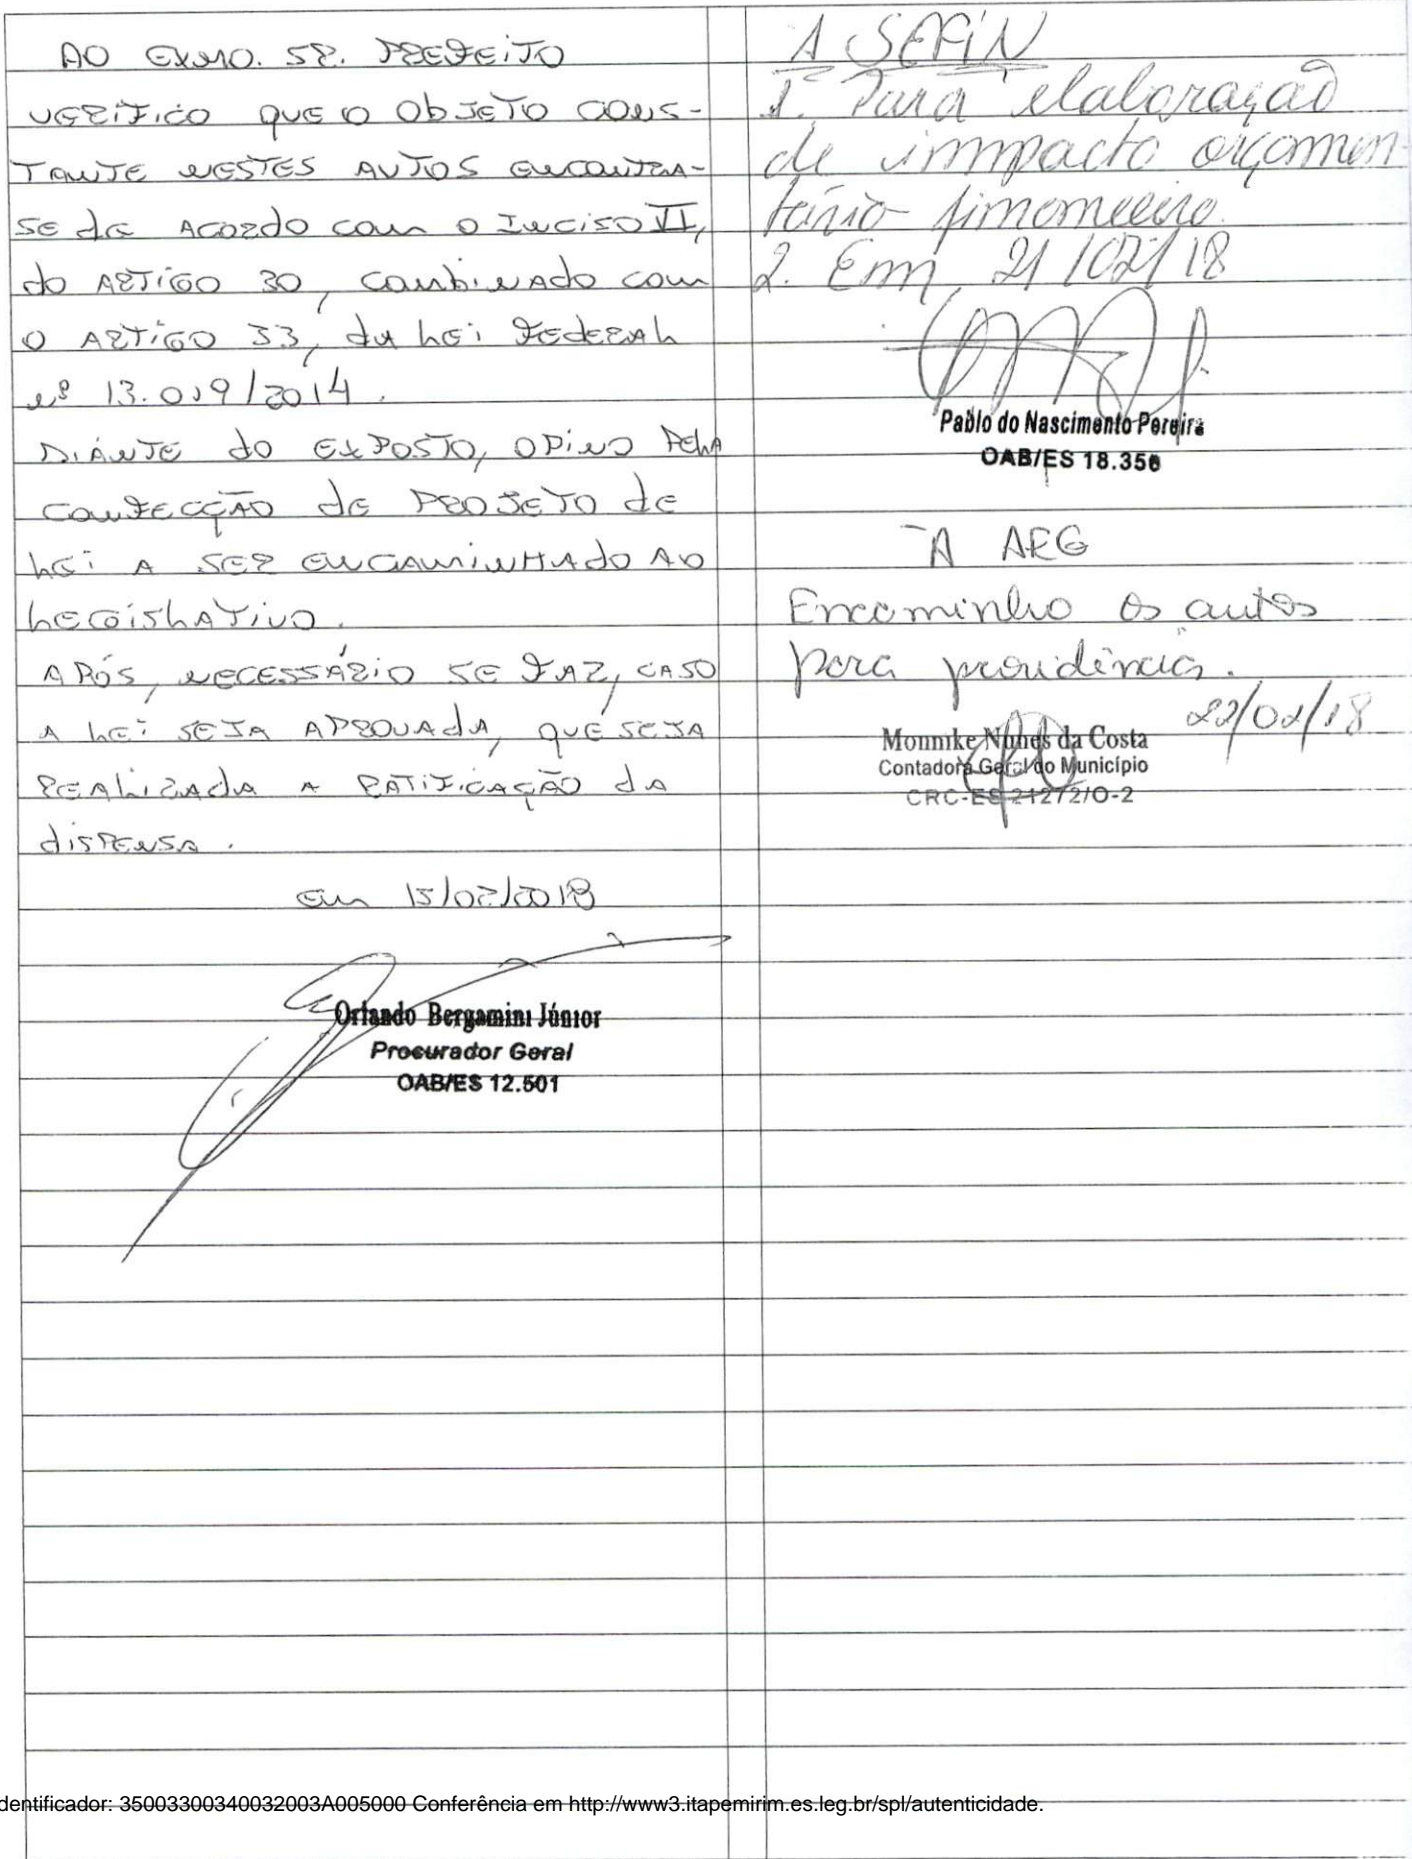 AO EXMO. SR. PREFEITO
VERIFICO QUE O OBJETO CONS-
TANTE NESTES AUTOS ENCONTRA-
SE de ACORDO com O INCISO VI,
do ARTIGO 30, combinado com
O ARTIGO 33, da Lei FEDERAL
nº 13.019/2014.
DIANTE do EXPOSTO, OPINO PELA
CONFECÇÃO de PROJETO de
LEI A SER ENCAMINHADO AO
LEGISLATIVO.
APÓS, NECESSÁRIO SE FAZ, CASO
A LEI SEJA APROVADA, QUE SEJA
REALIZADA A RATIFICAÇÃO da
dispensa.
em 15/02/2018
Orlando Bergamini Júnior
Procurador Geral
OAB/ES 12.501
A SEFIN
1. Para elaboração
de immpacto orçamen-
tário financeiro.
2. Em, 21/02/18
Pablo do Nascimento Pereira
OAB/ES 18.350
A AEG
Encaminho os autos
para providências.
22/02/18
Monnike Nunes da Costa
Contadora Geral do Município
CRC-ES 21272/O-2
dentificador: 35003300340032003A005000 Conferência em http://www3.itapemirim.es.leg.br/spl/autenticidade.